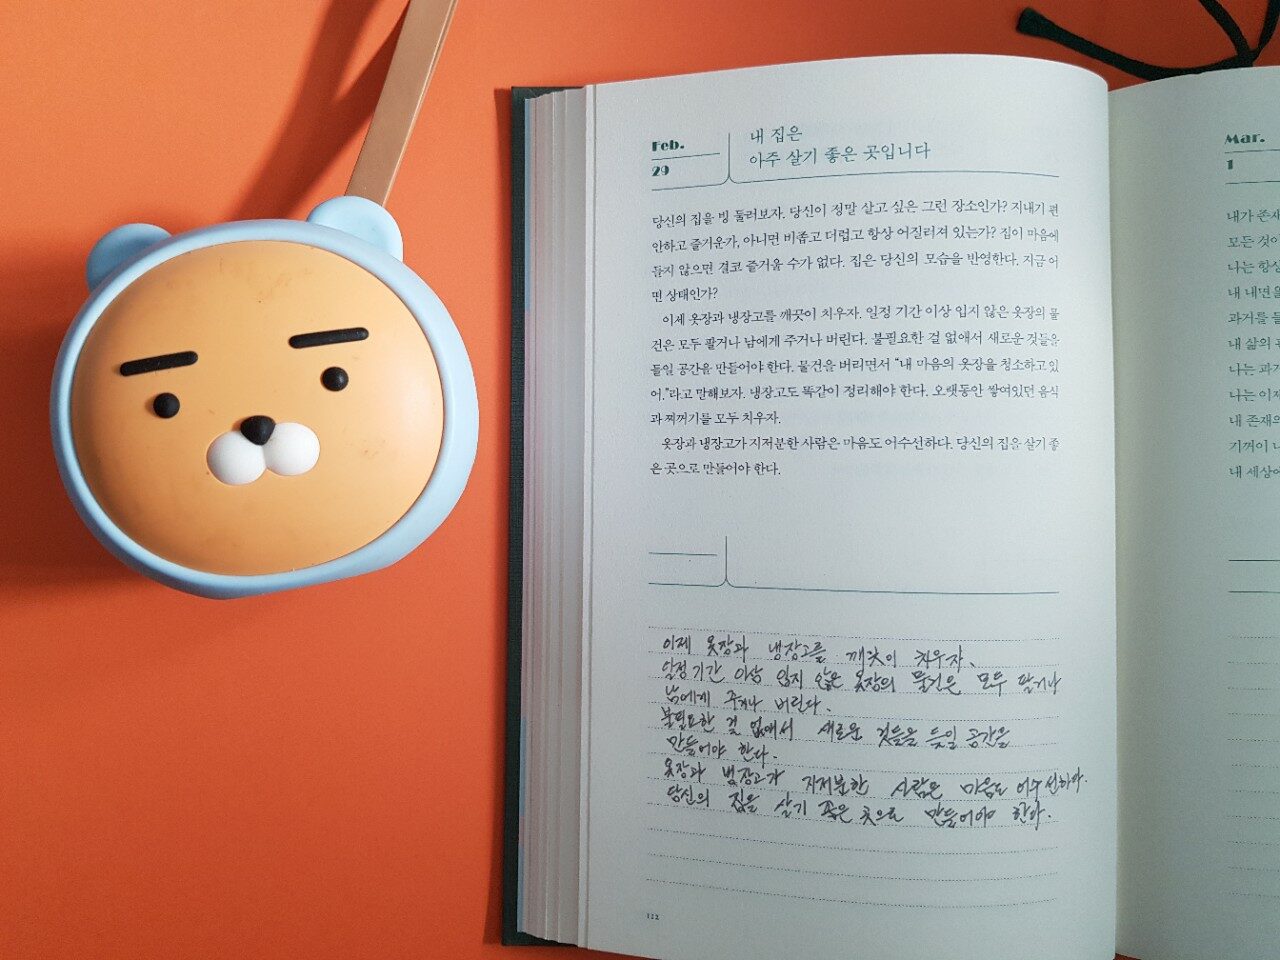 Feb.
29
내 집은
아주 살기 좋은 곳입니다
당신의 집을 빙 둘러보자. 당신이 정말 살고 싶은 그런 장소인가? 지내기 편
안하고 즐거운가, 아니면 비좁고 더럽고 항상 어질러져 있는가? 집이 마음에
들지 않으면 결코 즐거울 수가 없다. 집은 당신의 모습을 반영한다. 지금 어
떤 상태인가?
이제 옷장과 냉장고를 깨끗이 치우자. 일정 기간 이상 입지 않은 옷장의 물
건은 모두 팔거나 남에게 주거나 버린다. 불필요한 걸 없애서 새로운 것들을
들일 공간을 만들어야 한다. 물건을 버리면서 “내 마음의 옷장을 청소하고 있
어.”라고 말해보자. 냉장고도 똑같이 정리해야 한다. 오랫동안 쌓여있던 음식
과 찌꺼기를 모두 치우자.
옷장과 냉장고가 지저분한 사람은 마음도 어수선하다. 당신의 집을 살기 좋
은 곳으로 만들어야 한다.
이제 옷장과 냉장고를 깨끗이 치우자.
일정기간 이상 입지 않은 옷장의 물건은 모두 팔거나
남에게 주거나 버린다.
불필요한 걸 없애서 새로운 것들을 들일 공간을
만들어야 한다.
옷장과 냉장고가 지저분한 사람은 마음도 어수선하다.
당신의 집을 살기 좋은 곳으로 만들어야 한다.
112
Mar.
1
내가 존재
모든 것이
나는 항상
내 내면을
과거를
내 삶의
나는 과거
나는 이제
내 존재의
기꺼이
내 세상에